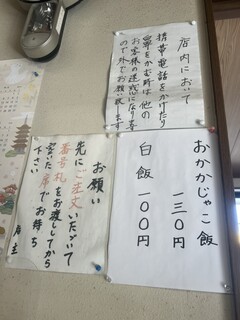 店内において
携帯電話をかけたり
鼻をかむ時は他の
お客様の迷惑になりま
ので外でお願い致します
おかかじゃこ飯
一三〇円
白飯
一〇〇円
お願い
先にご注文いただいて
番号札をお渡ししてから
空いた席でお待ち
下さい
店主